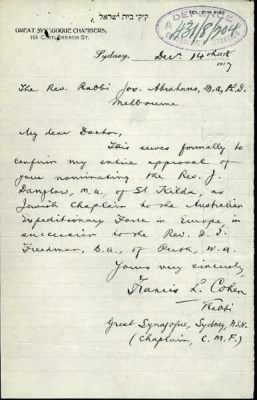 בית ישראל
GREAT SYNAGOGUE CHAMBERS,
166 CASTLEREAGH ST.
DEFENCE
431/8/904
Sydney, Dec. 14th
1917
The Rev. Rabbi Jos. Abrahams, M.A., Ph.D.
Melbourne
My dear Doctor,
This serves formally to
confirm my entire approval of
your nominating the Rev. J.
Danglow, M.A., of St Kilda, as
Jewish Chaplain to the Australian
Expeditionary Force in Europe in
succession to the Rev. D. I.
Freedman, B.A., of Perth, W.A.
Yours very sincerely
Francis L. Cohen
Rabbi
Great Synagogue, Sydney, N.S.W.
(Chaplain, C.M.F.)